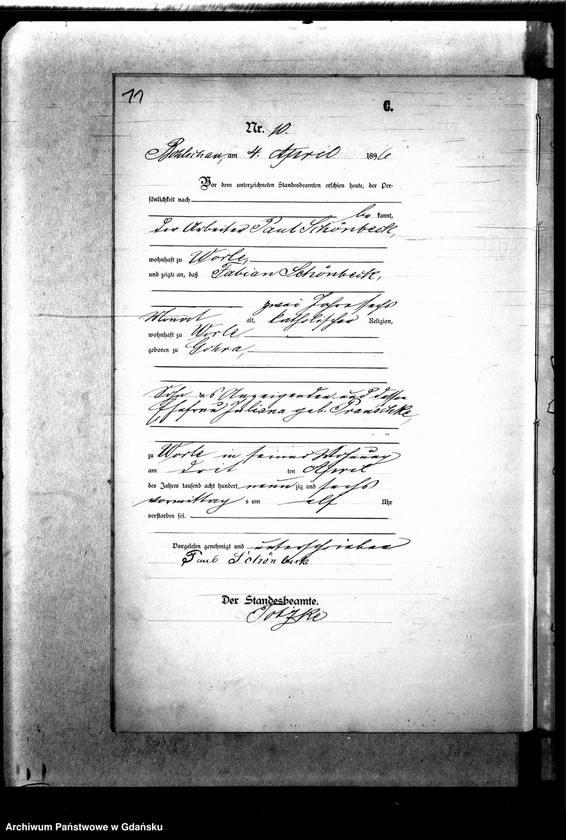 11
C.
Nr. 10.
Bohlschau, am 4. April 1896
Vor dem unterzeichneten Standesbeamten erschien heute, der Per-
sönlichkeit nach
be kannt,
der Arbeiter Paul Schönbeck,
wohnhaft zu Worle,
und zeigte an, daß Fabian Schönbeck,
zwei Jahre sechs
Monat alt, katholischer Religion,
wohnhaft zu Worle
geboren zu Gohra,
Sohn des Anzeigenden und dessen
Ehefrau Juliana geb.
zu Worle in seiner Wohnung
am drit ten April
des Jahres tausend acht hundert neun zig und sechs
vormittag s um elf Uhr
verstorben sei.
Vorgelesen genehmigt und unterschrieben
Paul Schönbeck
Der Standesbeamte.
Archiwum Państwowe w Gdańsku